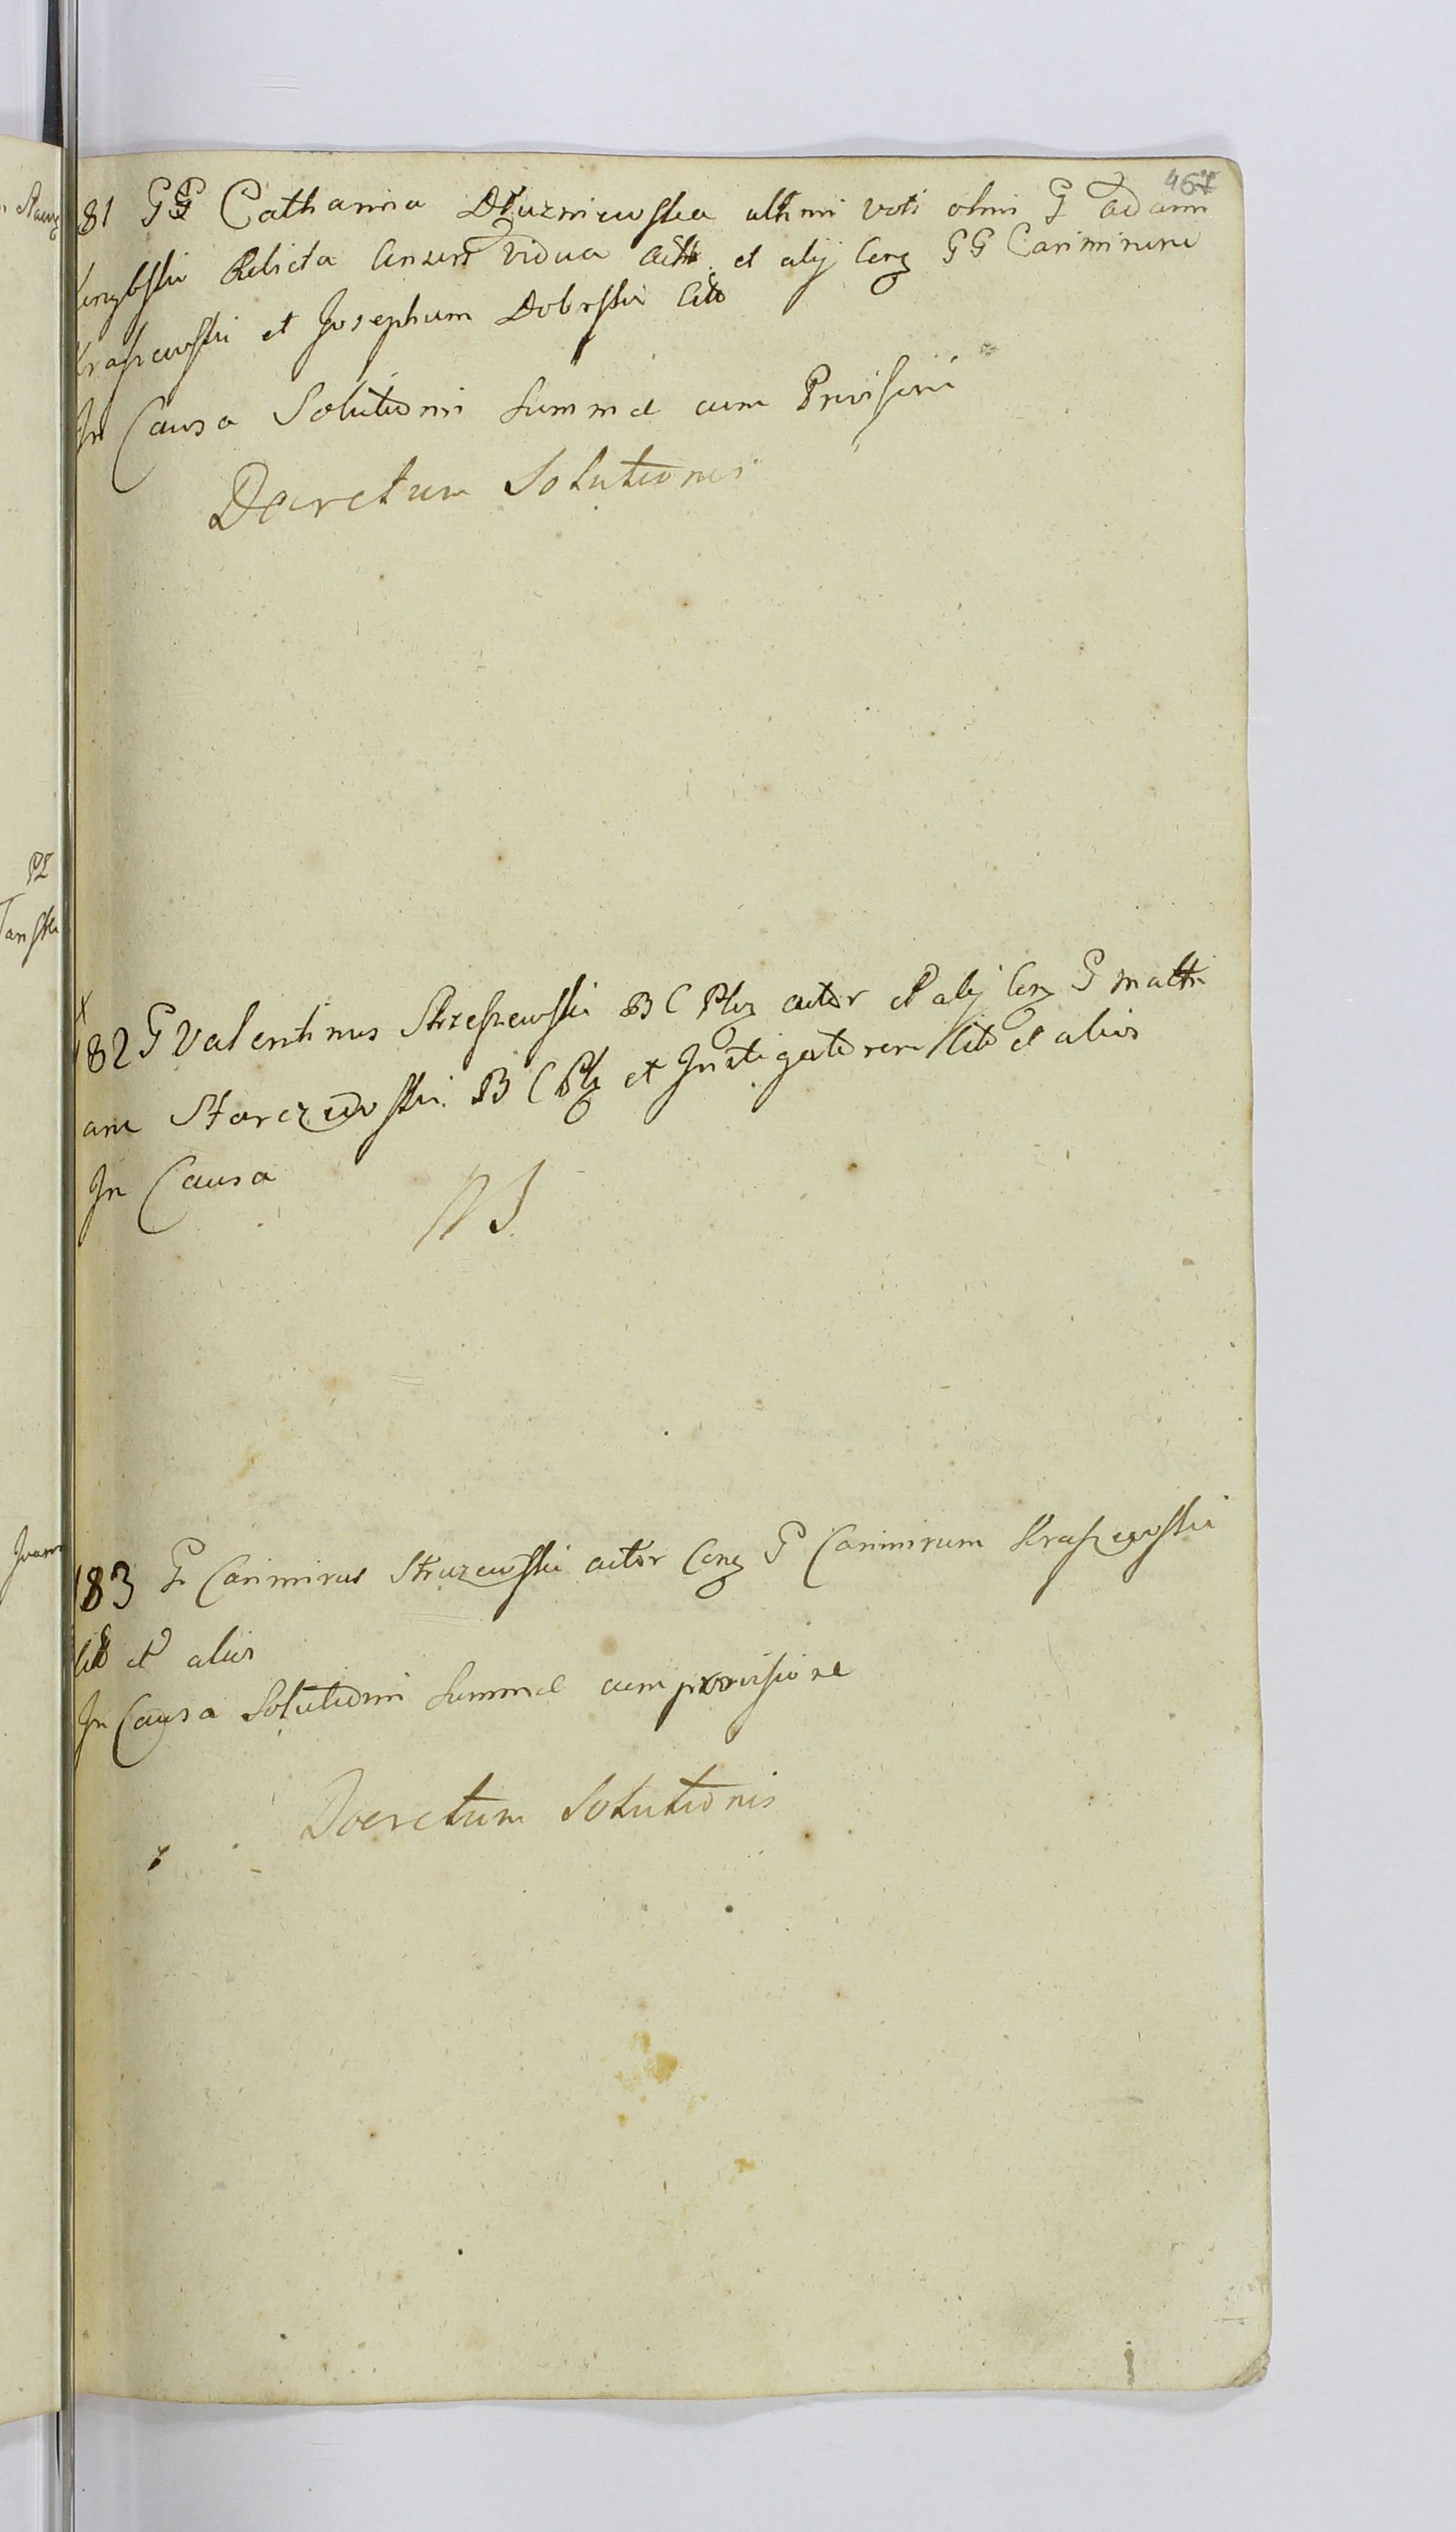 467
81 GG Catharina Dłuzniewska ultimi voti olim G Adami
Relicta Vidua et alij Conq GG Casimirum
Kraszewski et Josephum Dobrski Citt
In Causa Solutionis Summae cum Provisione
Decretum Solutionis
182 G Valentinus Strzeszewski B C Plq actor et alij Conq G Matthi
am Starczewski B C Plq et Instigatorem Citt et alios
In Causa
NS
183 G Casimirus Struzewski actor Conq G Casimirum Kraszewski
Citt et alios
In Causa Solutionis Summae cum provisione
Decretum Solutionis